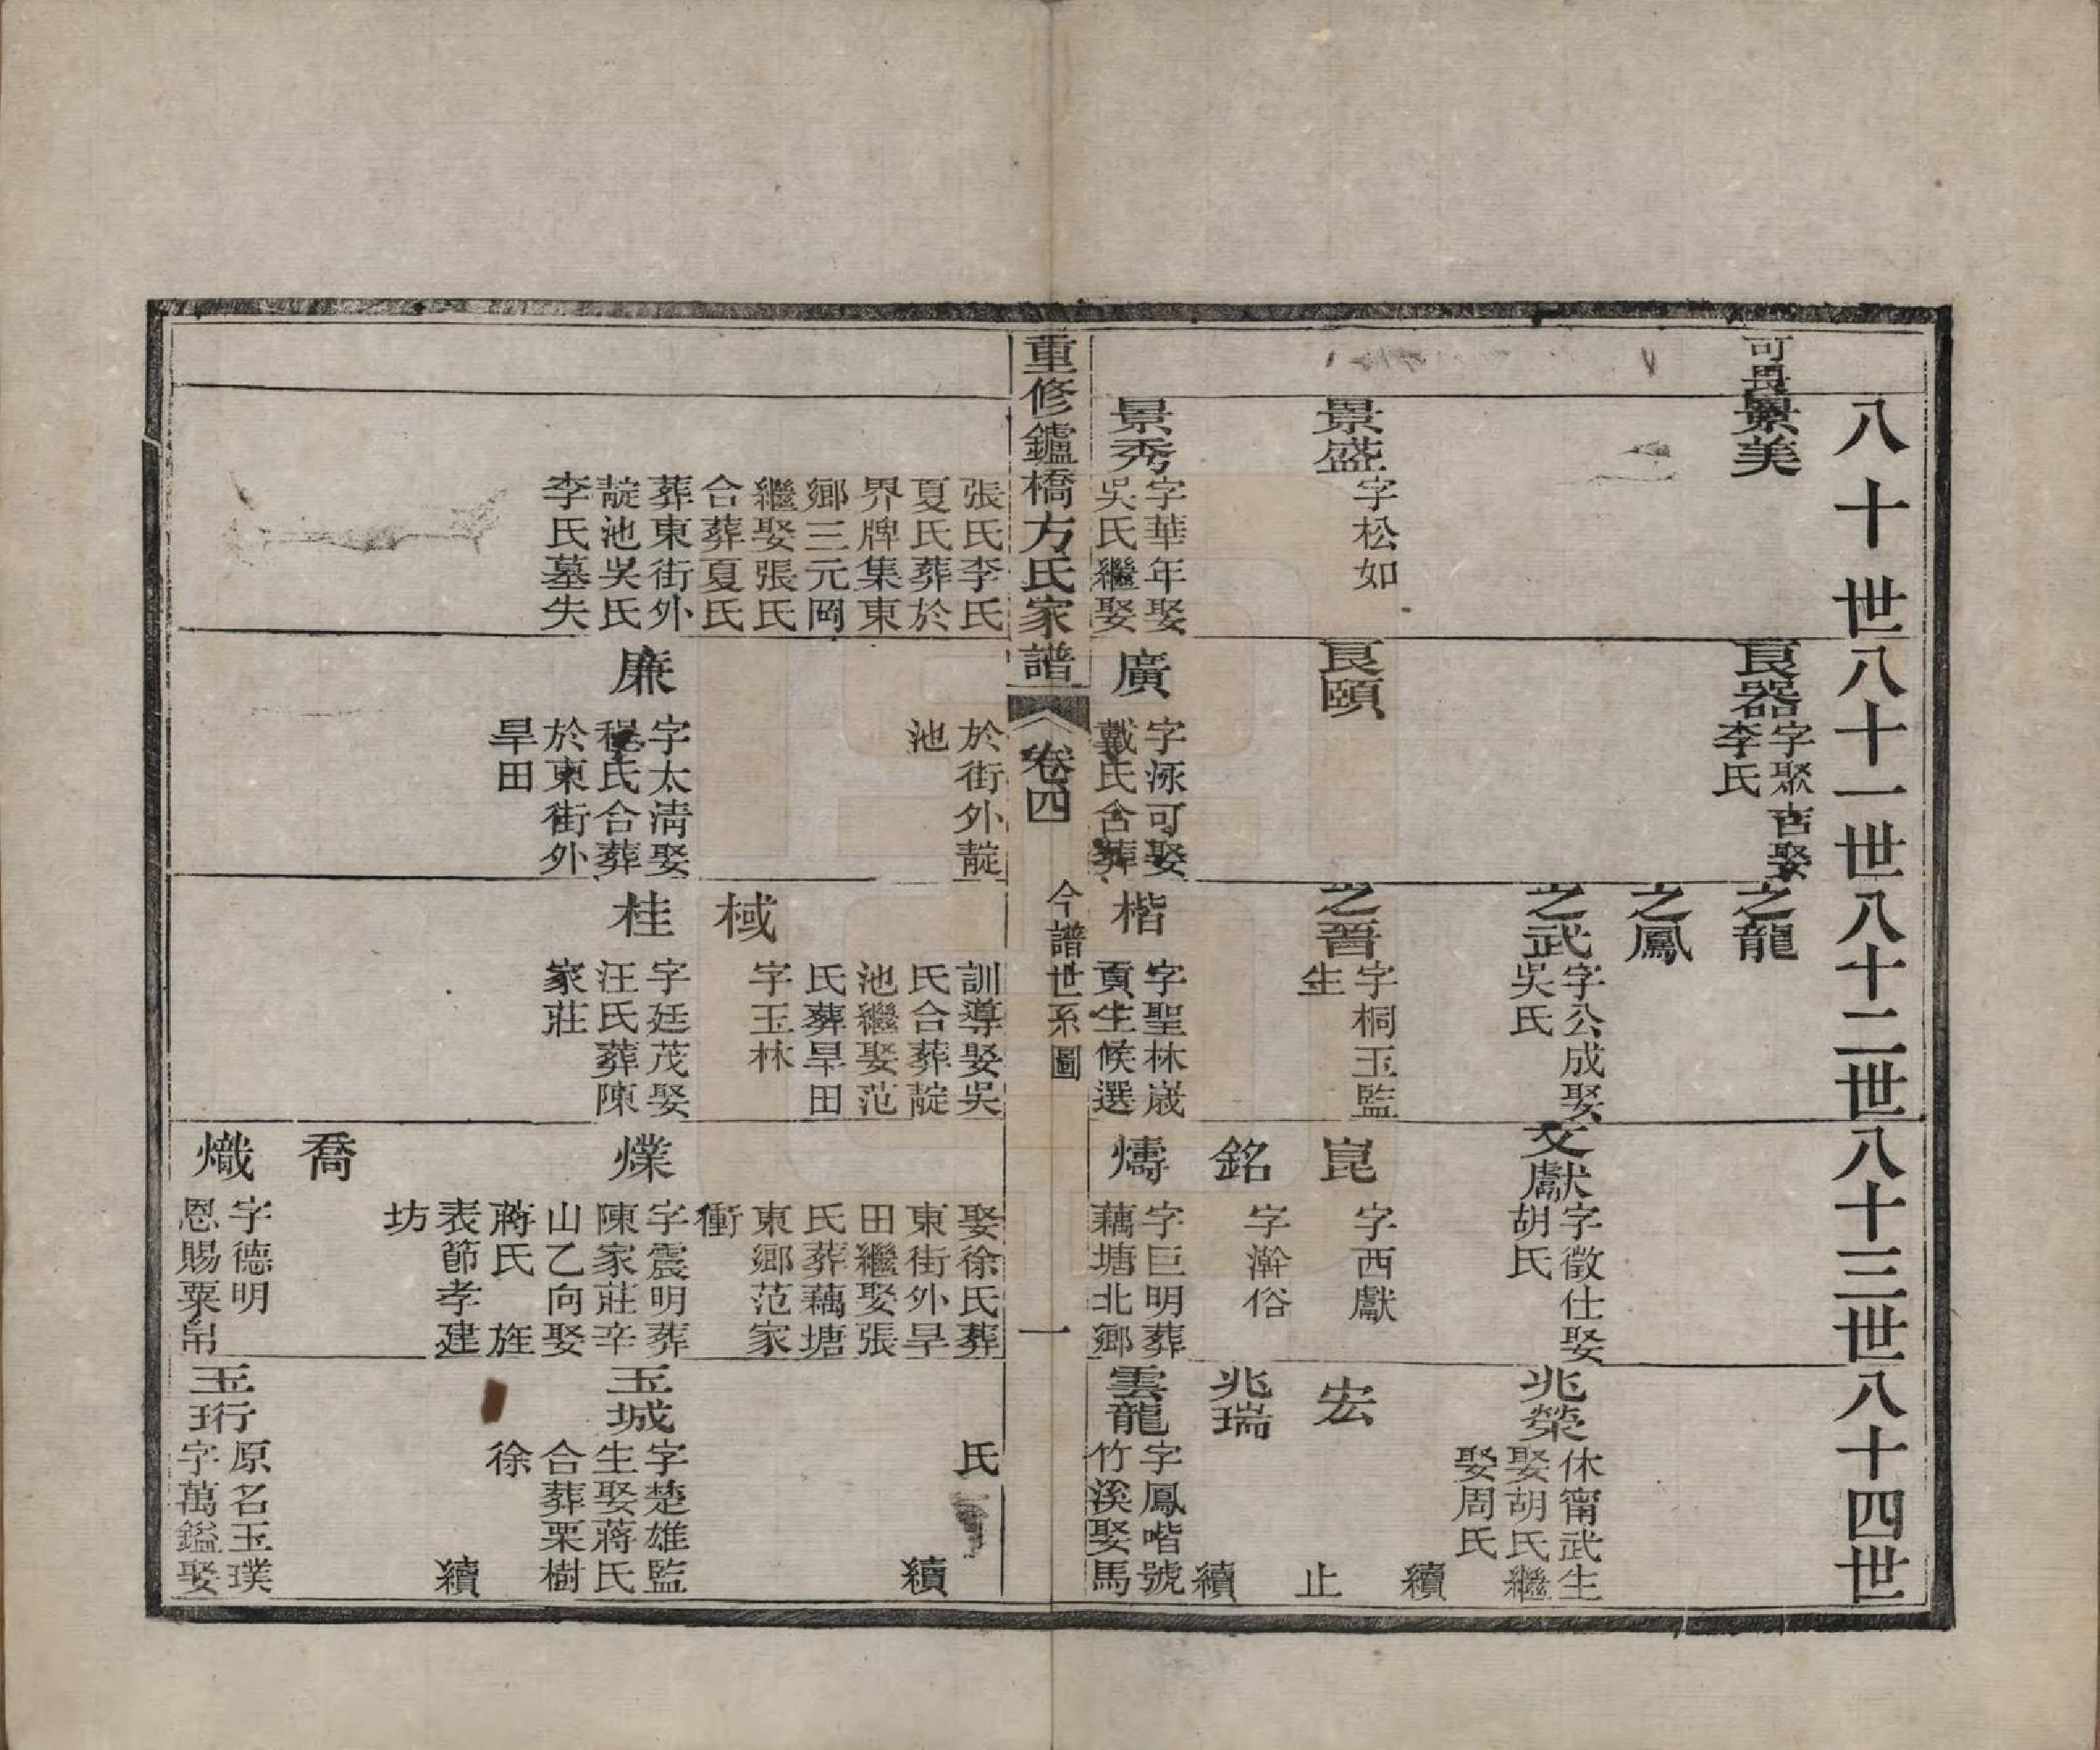 八十世八十一世八十二世八十三世八十四世
可畏
景美
景盛
字松如
景秀
字華年娶
吳氏繼娶
張氏李氏
夏氏葬於
界牌集東
鄉三元岡
繼娶張氏
合葬夏氏
葬東街外
靛池吳氏
李氏墓失
良器
字聚吉娶
李氏
良頤
廣
字泳可娶
戴氏合葬
於街外靛
池
廉
字太清娶
程氏合葬
於東街外
旱田
之龍
之鳳
之武
字公成娶
吳氏
之晉
字桐玉監
生
楷
字聖林歲
貢生候選
訓導娶吳
氏合葬靛
池繼娶范
氏葬旱田
棫
字玉林
桂
字廷茂娶
汪氏葬陳
家莊
文獻
字徵仕娶
胡氏
崑
字西獻
銘
字澣俗
燽
字巨明葬
藕塘北鄉
娶徐氏葬
東街外旱
田繼娶張
氏葬藕塘
東鄉范家
衝
爗
字震明葬
陳家莊辛
山乙向娶
蔣氏 旌
表節孝建
坊
喬
熾
字德明
恩賜粟帛
兆榮
休甯武生
娶胡氏繼
娶周氏
續
宏
止
兆瑞
續
雲龍
字鳳喈號
竹溪娶馬
氏
續
玉城
字楚雄監
生娶蔣氏
合葬栗樹
徐
續
玉珩
原名玉璞
字萬鎰娶
重修鑪橋方氏家譜
卷四
今譜世系圖
一